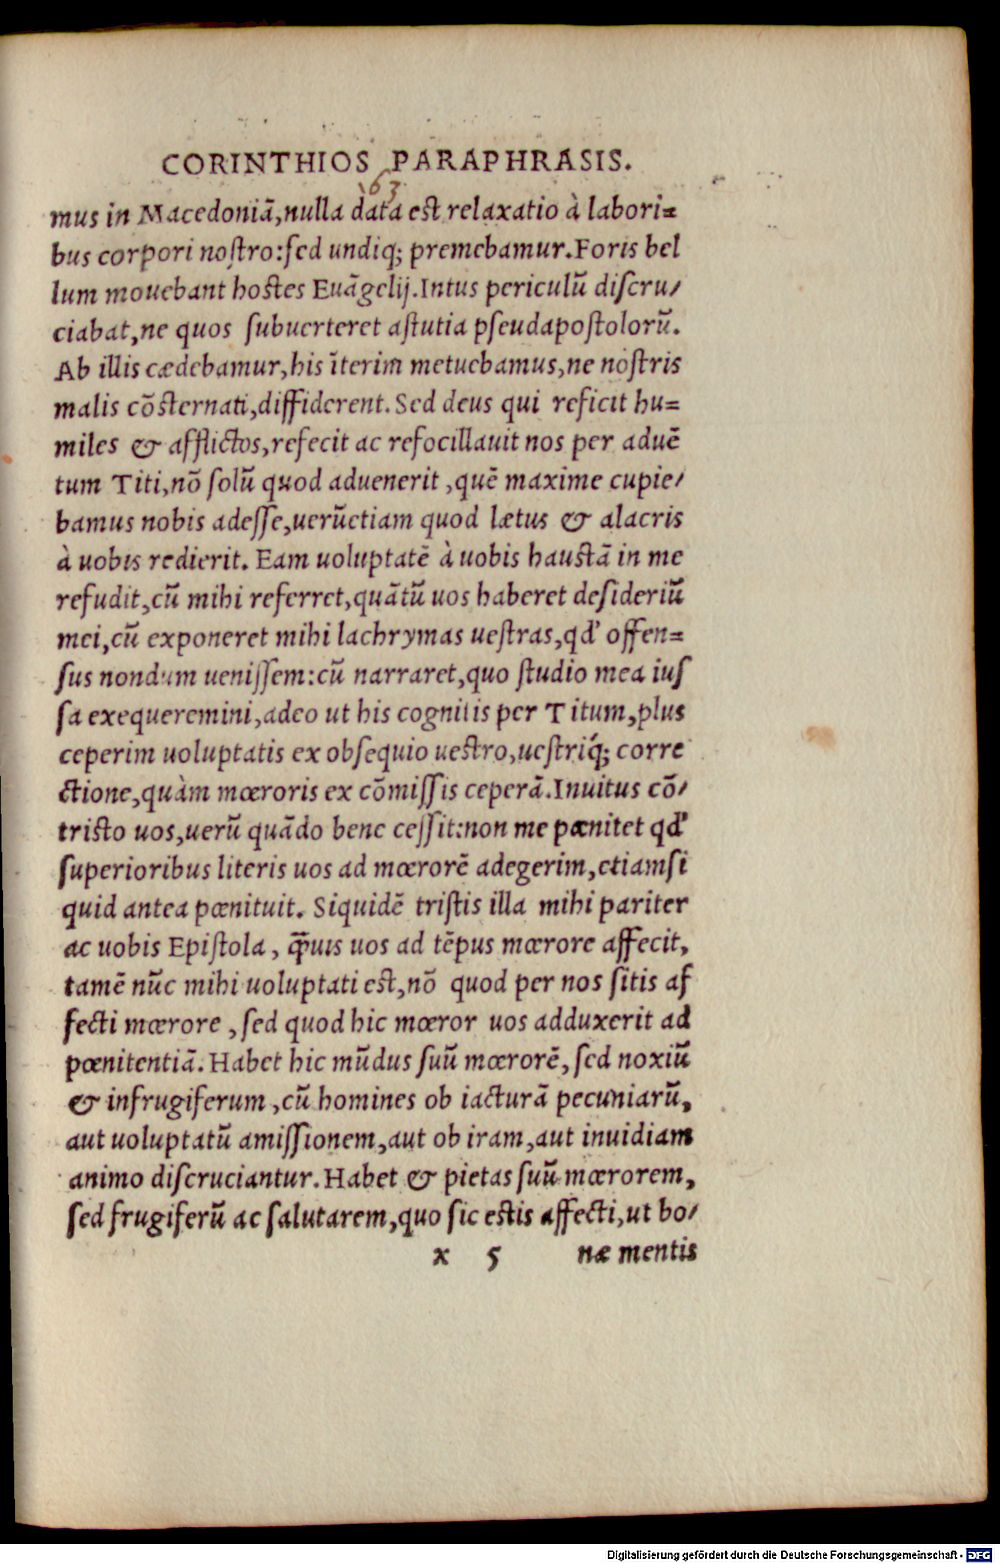 CORINTHIOS PARAPHRASIS.
163
mus in Macedoniā, nulla data est relaxatio à labori=
bus corpori nostro: sed undiq; premebamur. Foris bel
lum mouebant hostes Euāgelij. Intus periculū discru/
ciabat, ne quos subuerteret astutia pseudapostolorū.
Ab illis cædebamur, his īterim metuebamus, ne nostris
malis cōsternati, diffiderent. Sed deus qui reficit hu=
miles & afflictos, refecit ac refocillauit nos per aduē
tum Titi, nō solū quod aduenerit, quē maxime cupie/
bamus nobis adesse, uerūetiam quod lætus & alacris
à uobis redierit. Eam uoluptatē à uobis haustā in me
refudit, cū mihi referret, quātū uos haberet desideriū
mei, cū exponeret mihi lachrymas uestras, qd' offen=
sus nondum uenissem: cū narraret, quo studio mea ius
sa exequeremini, adeo ut his cognitis per Titum, plus
ceperim uoluptatis ex obsequio uestro, uestriq́; corre
ctione, quàm mœroris ex cōmissis ceperā. Inuitus cō/
tristo uos, uerū quādo bene cessit: non me pœnitet qd'
superioribus literis uos ad mœrorē adegerim, etiamsi
quid antea pœnituit. Siquidē tristis illa mihi pariter
ac uobis Epistola, q̄uis uos ad tēpus mœrore affecit,
tamē nūc mihi uoluptati est, nō quod per nos sitis af
fecti mœrore, sed quod hic mœror uos adduxerit ad
pœnitentiā. Habet hic mūdus suū mœrorē, sed noxiū
& infrugiferum, cū homines ob iacturā pecuniarū,
aut uoluptatū amissionem, aut ob iram, aut inuidiam
animo discruciantur. Habet & pietas suū mœrorem,
sed frugiferū ac salutarem, quo sic estis affecti, ut bo/
x 5 næ mentis
Digitalisierung gefördert durch die Deutsche Forschungsgemeinschaft - DFG